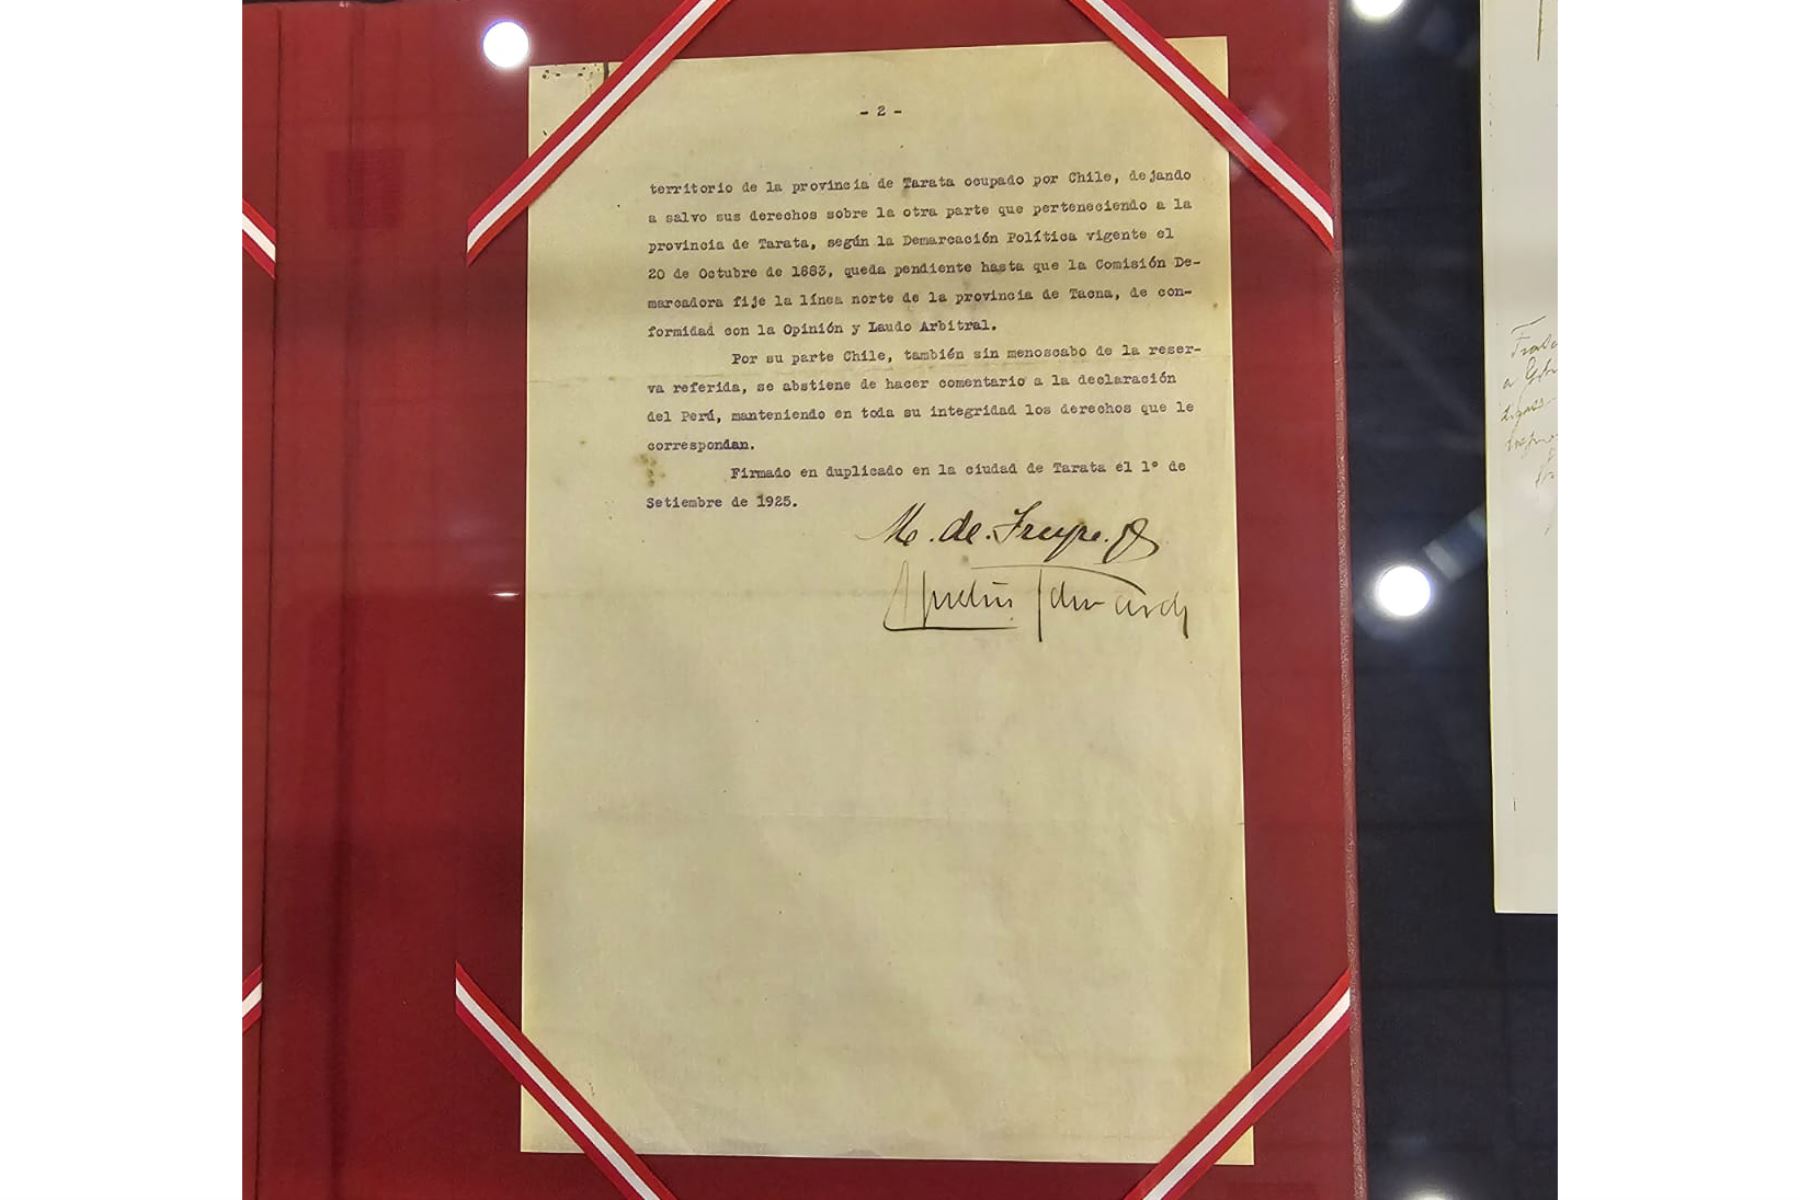 - 2 -
territorio de la provincia de Tarata ocupado por Chile, dejando
a salvo sus derechos sobre la otra parte que perteneciendo a la
provincia de Tarata, según la Demarcación Política vigente el
20 de Octubre de 1883, queda pendiente hasta que la Comisión De-
marcadora fije la línea norte de la provincia de Tacna, de con-
formidad con la Opinión y Laudo Arbitral.
Por su parte Chile, también sin menoscabo de la reser-
va referida, se abstiene de hacer comentario a la declaración
del Perú, manteniendo en toda su integridad los derechos que le
correspondan.
Firmado en duplicado en la ciudad de Tarata el 1° de
Setiembre de 1925.
M. de Freyre
Agustín Edwards